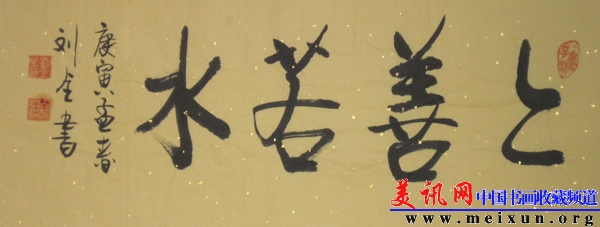 上善若水
庚寅孟春
刘金书
美讯网 中国书画收藏频道
www.meixun.org